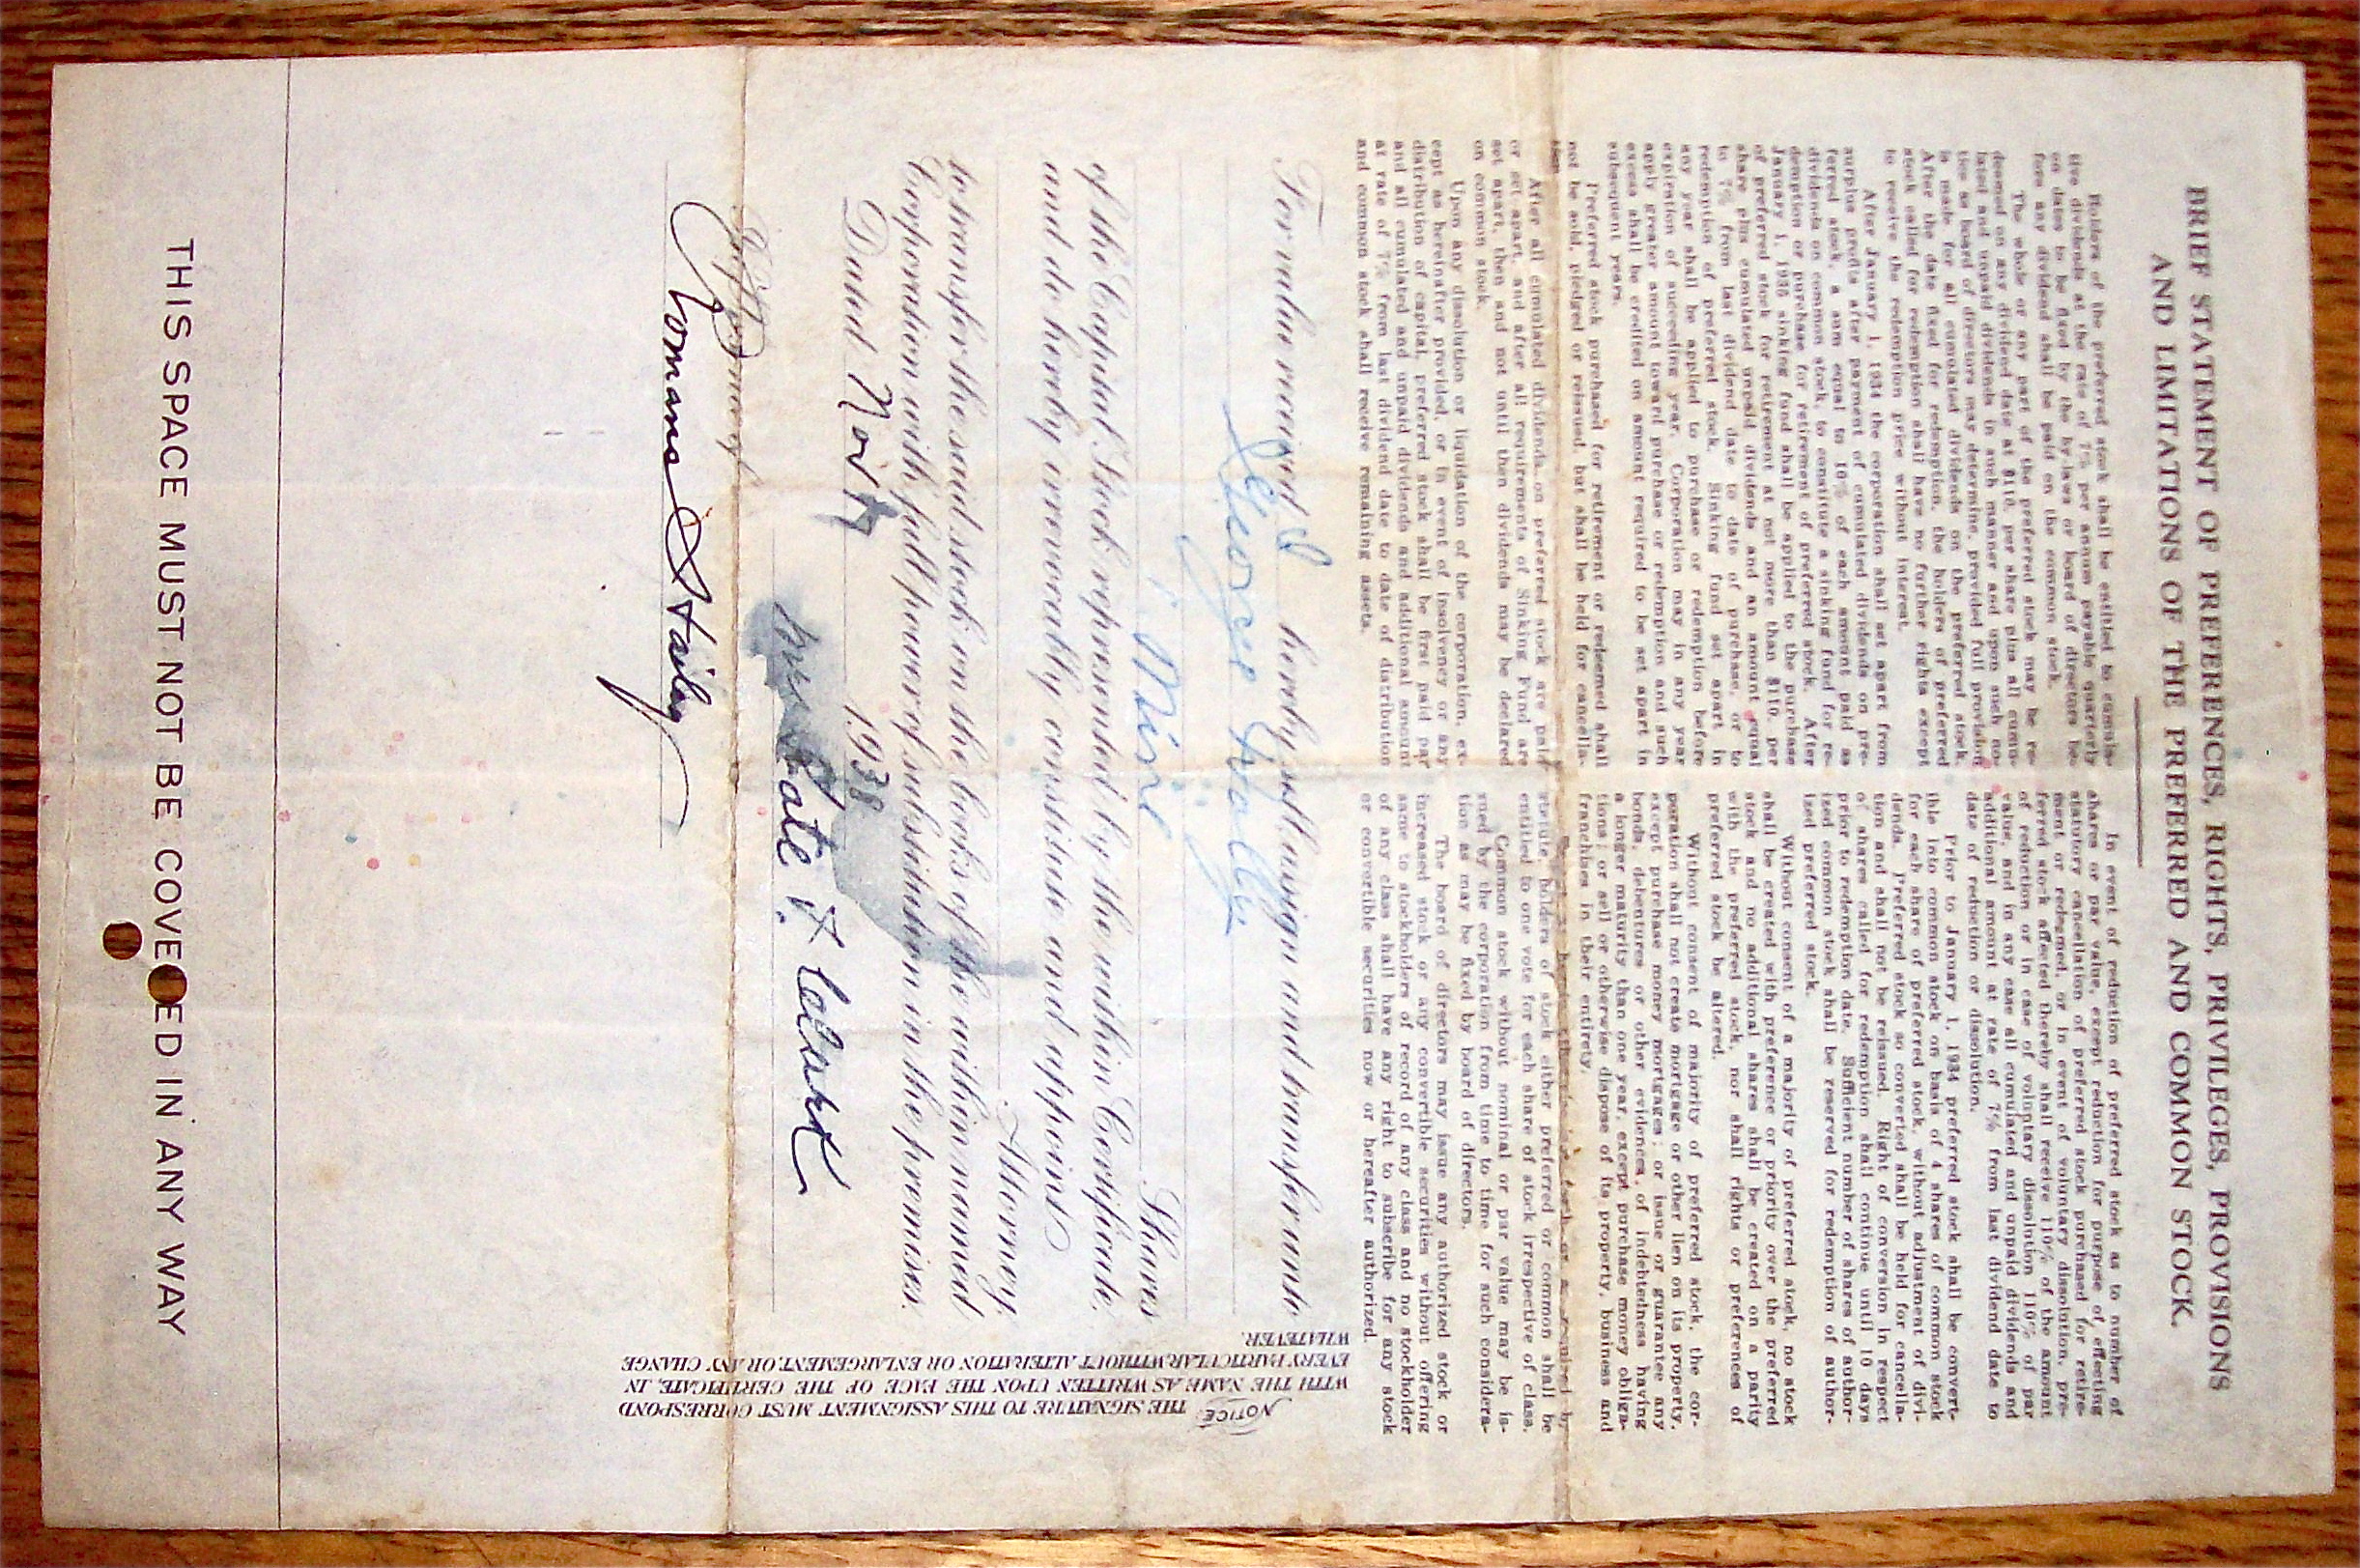 BRIEF STATEMENT OF PREFERENCES, RIGHTS, PRIVILEGES, PROVISIONS
AND LIMITATIONS OF THE PREFERRED AND COMMON STOCK.
Holders of the preferred stock shall be entitled to cumula-
tive dividends at the rate of 7% per annum payable quarterly
on dates to be fixed by the by-laws or board of directors be-
fore any dividend shall be paid on the common stock.
The whole or any part of the preferred stock may be re-
deemed on any dividend date at $110. per share plus all cumu-
lated and unpaid dividends in such manner and upon such no-
tice as board of directors may determine, provided full provision
is made for all cumulated dividends on the preferred stock.
After the date fixed for redemption, the holders of preferred
stock called for redemption shall have no further rights except
to receive the redemption price without interest.
After January 1, 1934 the corporation shall set apart from
surplus profits after payment of cumulated dividends on pre-
ferred stock, a sum equal to 10% of each amount paid as
dividends on common stock, to constitute a sinking fund for re-
demption or purchase for retirement of preferred stock. After
January 1, 1935 sinking fund shall be applied to the purchase
of preferred stock for retirement at not more than $110. per
share plus cumulated unpaid dividends and an amount equal
to 7% from last dividend date to date of purchase, or to
redemption of preferred stock. Sinking fund set apart in
any year shall be applied to purchase or redemption before
expiration of succeeding year. Corporation may in any year
apply greater amount toward purchase or redemption and such
excess shall be credited on amount required to be set apart in
subsequent years.
Preferred stock purchased for retirement or redeemed shall
not be sold, pledged or reissued, but shall be held for cancella-
tion.
After all cumulated dividends on preferred stock are paid
or set apart, and after all requirements of Sinking Fund are
set apart, then and not until then dividends may be declared
on common stock.
Upon any dissolution or liquidation of the corporation, ex-
cept as hereinafter provided, or in event of insolvency or any
distribution of capital, preferred stock shall be first paid par
and all cumulated and unpaid dividends and additional amount
at rate of 7% from last dividend date to date of distribution
and common stock shall receive remaining assets.
In event of reduction of preferred stock as to number of
shares or par value, except reduction for purpose of effecting
statutory cancellation of preferred stock purchased for retire-
ment or redeemed, or in event of voluntary dissolution, pre-
ferred stock affected thereby shall receive 110% of the amount
of reduction or in case of voluntary dissolution 110% of par
value, and in any case all cumulated and unpaid dividends and
additional amount at rate of 7% from last dividend date to
date of reduction or dissolution.
Prior to January 1, 1934 preferred stock shall be convert-
ible into common stock on basis of 4 shares of common stock
for each share of preferred stock, without adjustment of divi-
dends. Preferred stock so converted shall be held for cancella-
tion and shall not be reissued. Right of conversion in respect
of shares called for redemption shall continue until 10 days
prior to redemption date. Sufficient number of shares of author-
ized common stock shall be reserved for redemption of author-
ized preferred stock.
Without consent of a majority of preferred stock, no stock
shall be created with preference or priority over the preferred
stock and no additional shares shall be created on a parity
with the preferred stock, nor shall rights or preferences of
preferred stock be altered.
Without consent of majority of preferred stock, the cor-
poration shall not create mortgage or other lien on its property,
except purchase money mortgages; or issue or guarantee any
bonds, debentures or other evidences of indebtedness having
a longer maturity than one year, except purchase money obliga-
tions; or sell or otherwise dispose of its property, business and
franchises in their entirety.
statute, holders of stock either preferred or common shall be
entitled to one vote for each share of stock irrespective of class.
Common stock without nominal or par value may be is-
sued by the corporation from time to time for such considera-
tion as may be fixed by board of directors.
The board of directors may issue any authorized stock or
increased stock or any convertible securities without offering
same to stockholders of record of any class and no stockholder
of any class shall have any right to subscribe for any stock
or convertible securities now or hereafter authorized.
For value received I hereby sell, assign and transfer unto
George
Nine Shares
of the Capital Stock represented by the within Certificate,
and do hereby irrevocably constitute and appoint
Attorney
to transfer the said stock on the books of the within named
Corporation with full power of substitution in the premises.
Dated Nov 1938
Kate F. Clark
In presence of
Romane Haily
NOTICE
THE SIGNATURE TO THIS ASSIGNMENT MUST CORRESPOND
WITH THE NAME AS WRITTEN UPON THE FACE OF THE CERTIFICATE, IN
EVERY PARTICULAR, WITHOUT ALTERATION OR ENLARGEMENT, OR ANY CHANGE
WHATEVER.
THIS SPACE MUST NOT BE COVERED IN ANY WAY